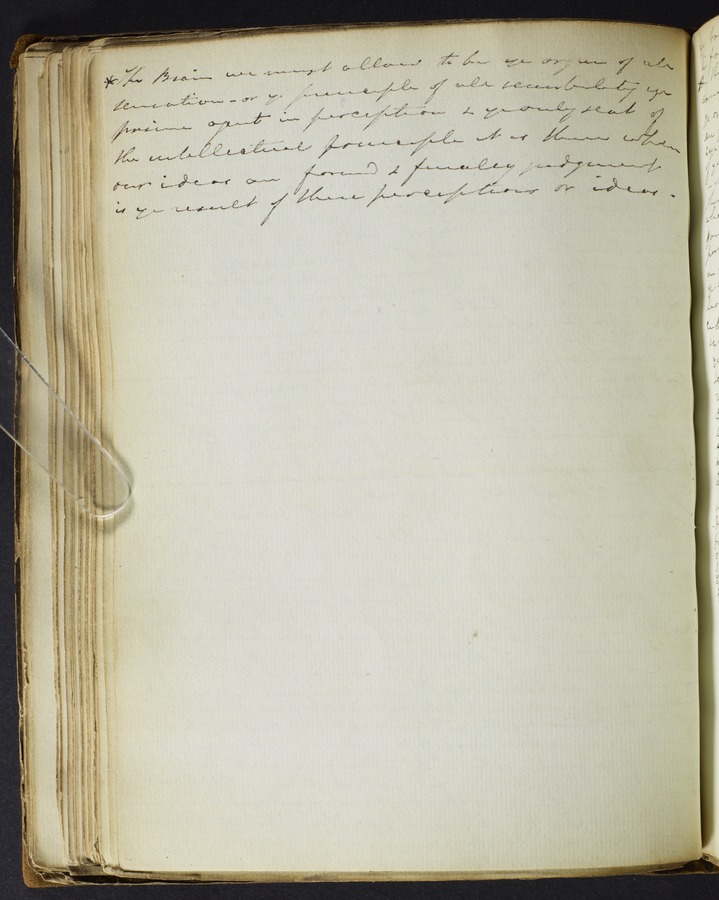 * The Brain we must allow to be ye organ of all
sensation - or ye principle of all sensibility ye
prime agent in perception & ye only seat of
the intellectual principle it is there where
our ideas are formed & finally judgment
is ye result of these perceptions or ideas -